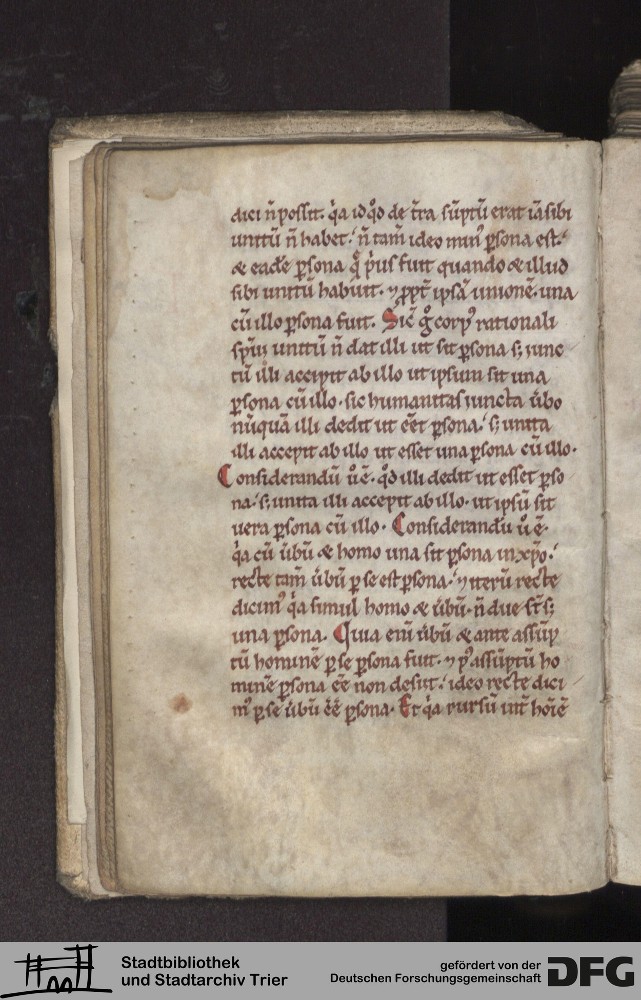 dici n̄ possit. q̇a id qͦd de t̄ra sūptū erat iā sibi
unitū n̄ habet.' n̄ tam̄ ideo min᷒ ꝑsona est.'
& eadē ꝑsona q̄ p̍us fuit quando & illud
sibi unitū habuit. ⁊ ꝓpt̄ ipsā unionē. una
cū illo ꝑsona fuit. Sic̄ gͦ corp᷒ rationali
sp̄ui unitū n̄ dat illi ut sit ꝑsona s; iunc
tū illi accipit ab illo ut ipsum sit una
ꝑsona cū illo. sic humanitas iuncta u̍bo
nūquā illi dedit ut eēt ꝑsona.' s; unita
illi accepit ab illo ut esset una ꝑsona cū illo.
Considerandū uͦ ē. qͦd illi dedit ut esset ꝑso
na.' s; unita illi accepit ab illo. ut ipsū sit
uera ꝑsona cū illo. Considerandū uͦ ē.
q̇a cū u̍bū & homo una sit ꝑsona in xp̄o.'
recte tam̄ u̍bū ꝑ se est ꝑsona.' ⁊ iterū recte
dicim᷒ q̇a simul homo & u̍bū. n̄ due st̄ s;
una ꝑsona. Quia eni̅ u̍bū & ante assūp
tū hominē ꝑ se ꝑsona fuit. ⁊ p᷒ assūptū ho
minē ꝑsona eē non desiit.' ideo recte dici
m᷒ ꝑ se u̍bū eē ꝑsona. Et q̇a rursū unit̄ hoīē
Stadtbibliothek
und Stadtarchiv Trier
gefördert von der
Deutschen Forschungsgemeinschaft
DFG